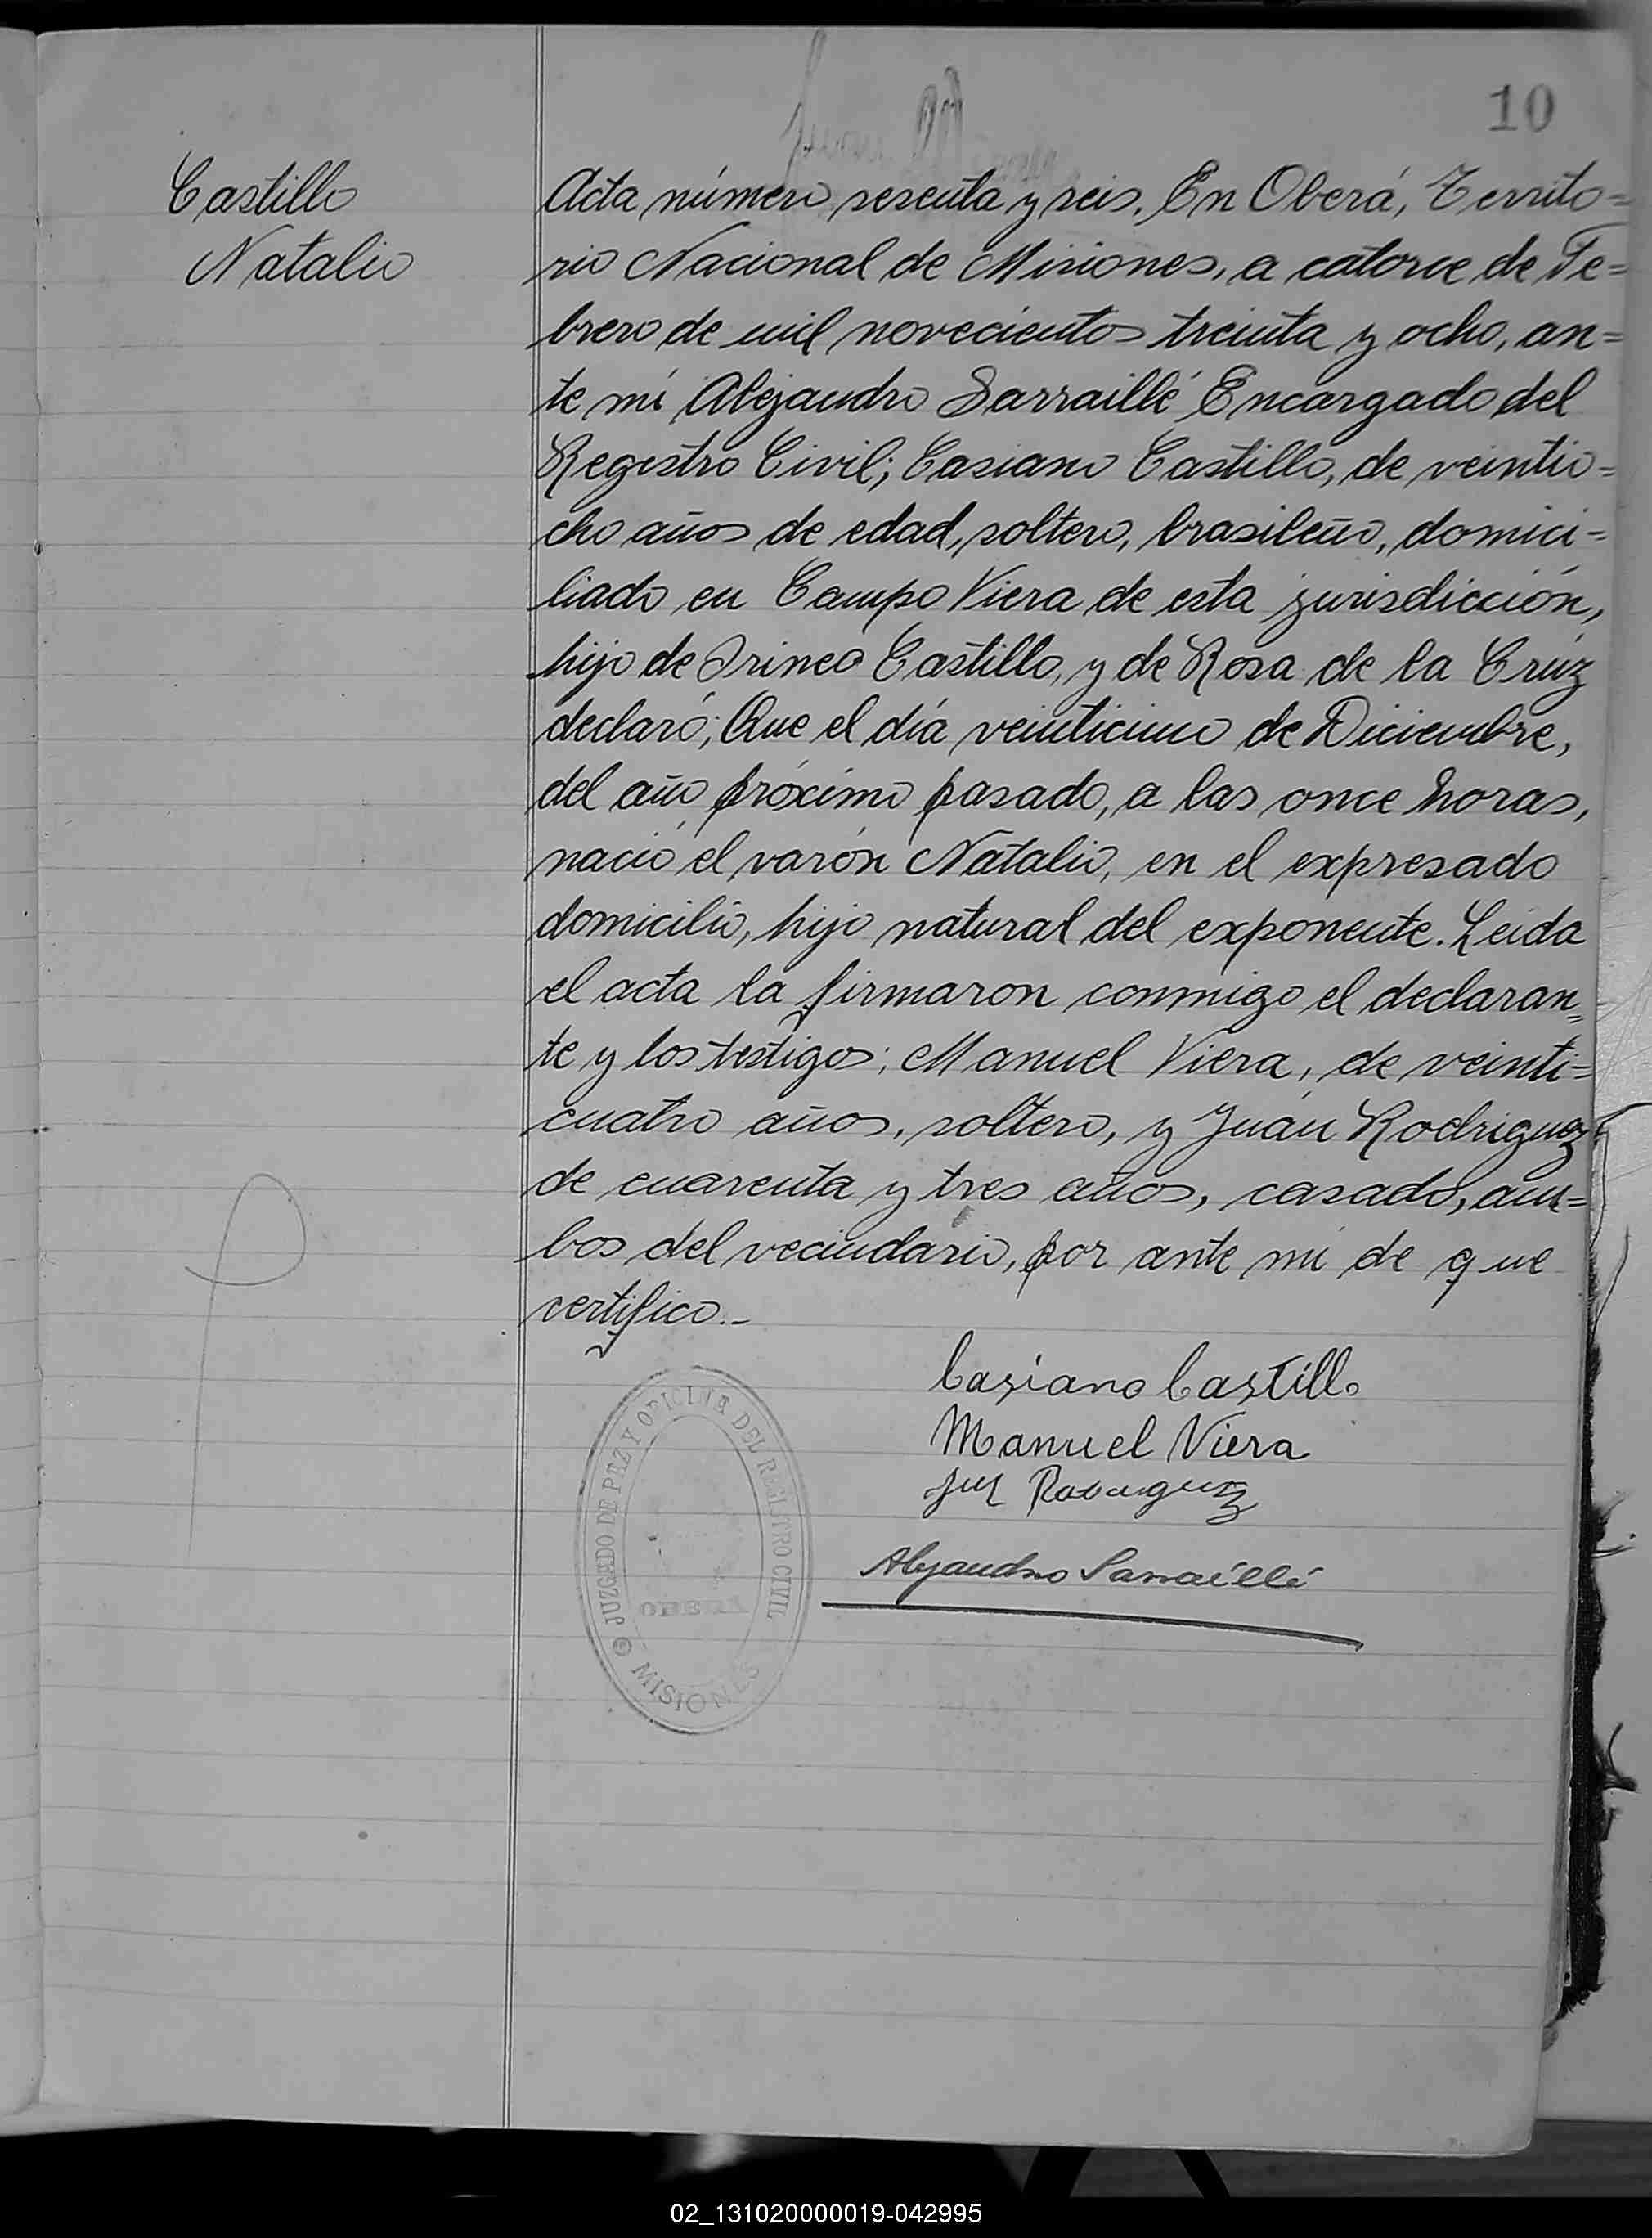 10
Castillo
Natalio
Acta número sesenta y seis. En Oberá, Territo=
rio Nacional de Misiones, a catorce de Fe=
brero de mil novecientos treinta y ocho, an=
te mí Alejandro Sarraillé Encargado del
Registro Civil; Casiano Castillo, de veintio=
cho años de edad, soltero, brasileño, domici=
liado en Campo Viera de esta jurisdicción,
hijo de Irineo Castillo, y de Rosa de la Crúz
declaró; Que el día veinticinco de Diciembre,
del año próximo pasado, a las once horas,
nació el varón Natalio, en el expresado
domicilio, hijo natural del exponente. Leida
el acta la firmaron conmigo el declaran=
te y los testigos; Manuel Viera, de veinti=
cuatro años, soltero, y Juán Rodriguez
de cuarenta y tres años, casado, am=
bos del vecindario, por ante mí de que
certifico.-
Casiano Castillo
Manuel Viera
Alejandro Sarraillé
JUZGADO DE PAZ Y OFICINA DEL REGISTRO CIVIL
OBERA
MISIONES
02_131020000019-042995